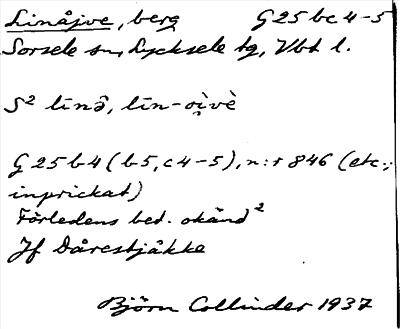 Linåjve, berg G 25 bc 4-5
Sorsele sn, Lycksele tg, Vbt l.
S² līnō̂, līn-oi̯vè
G 25 b 4 (b 5, c 4-5), n:r 846 (etc.;
inprickat)
Förledens bet. okänd ²
Jf Dårestjåkke
Björn Collinder 1937